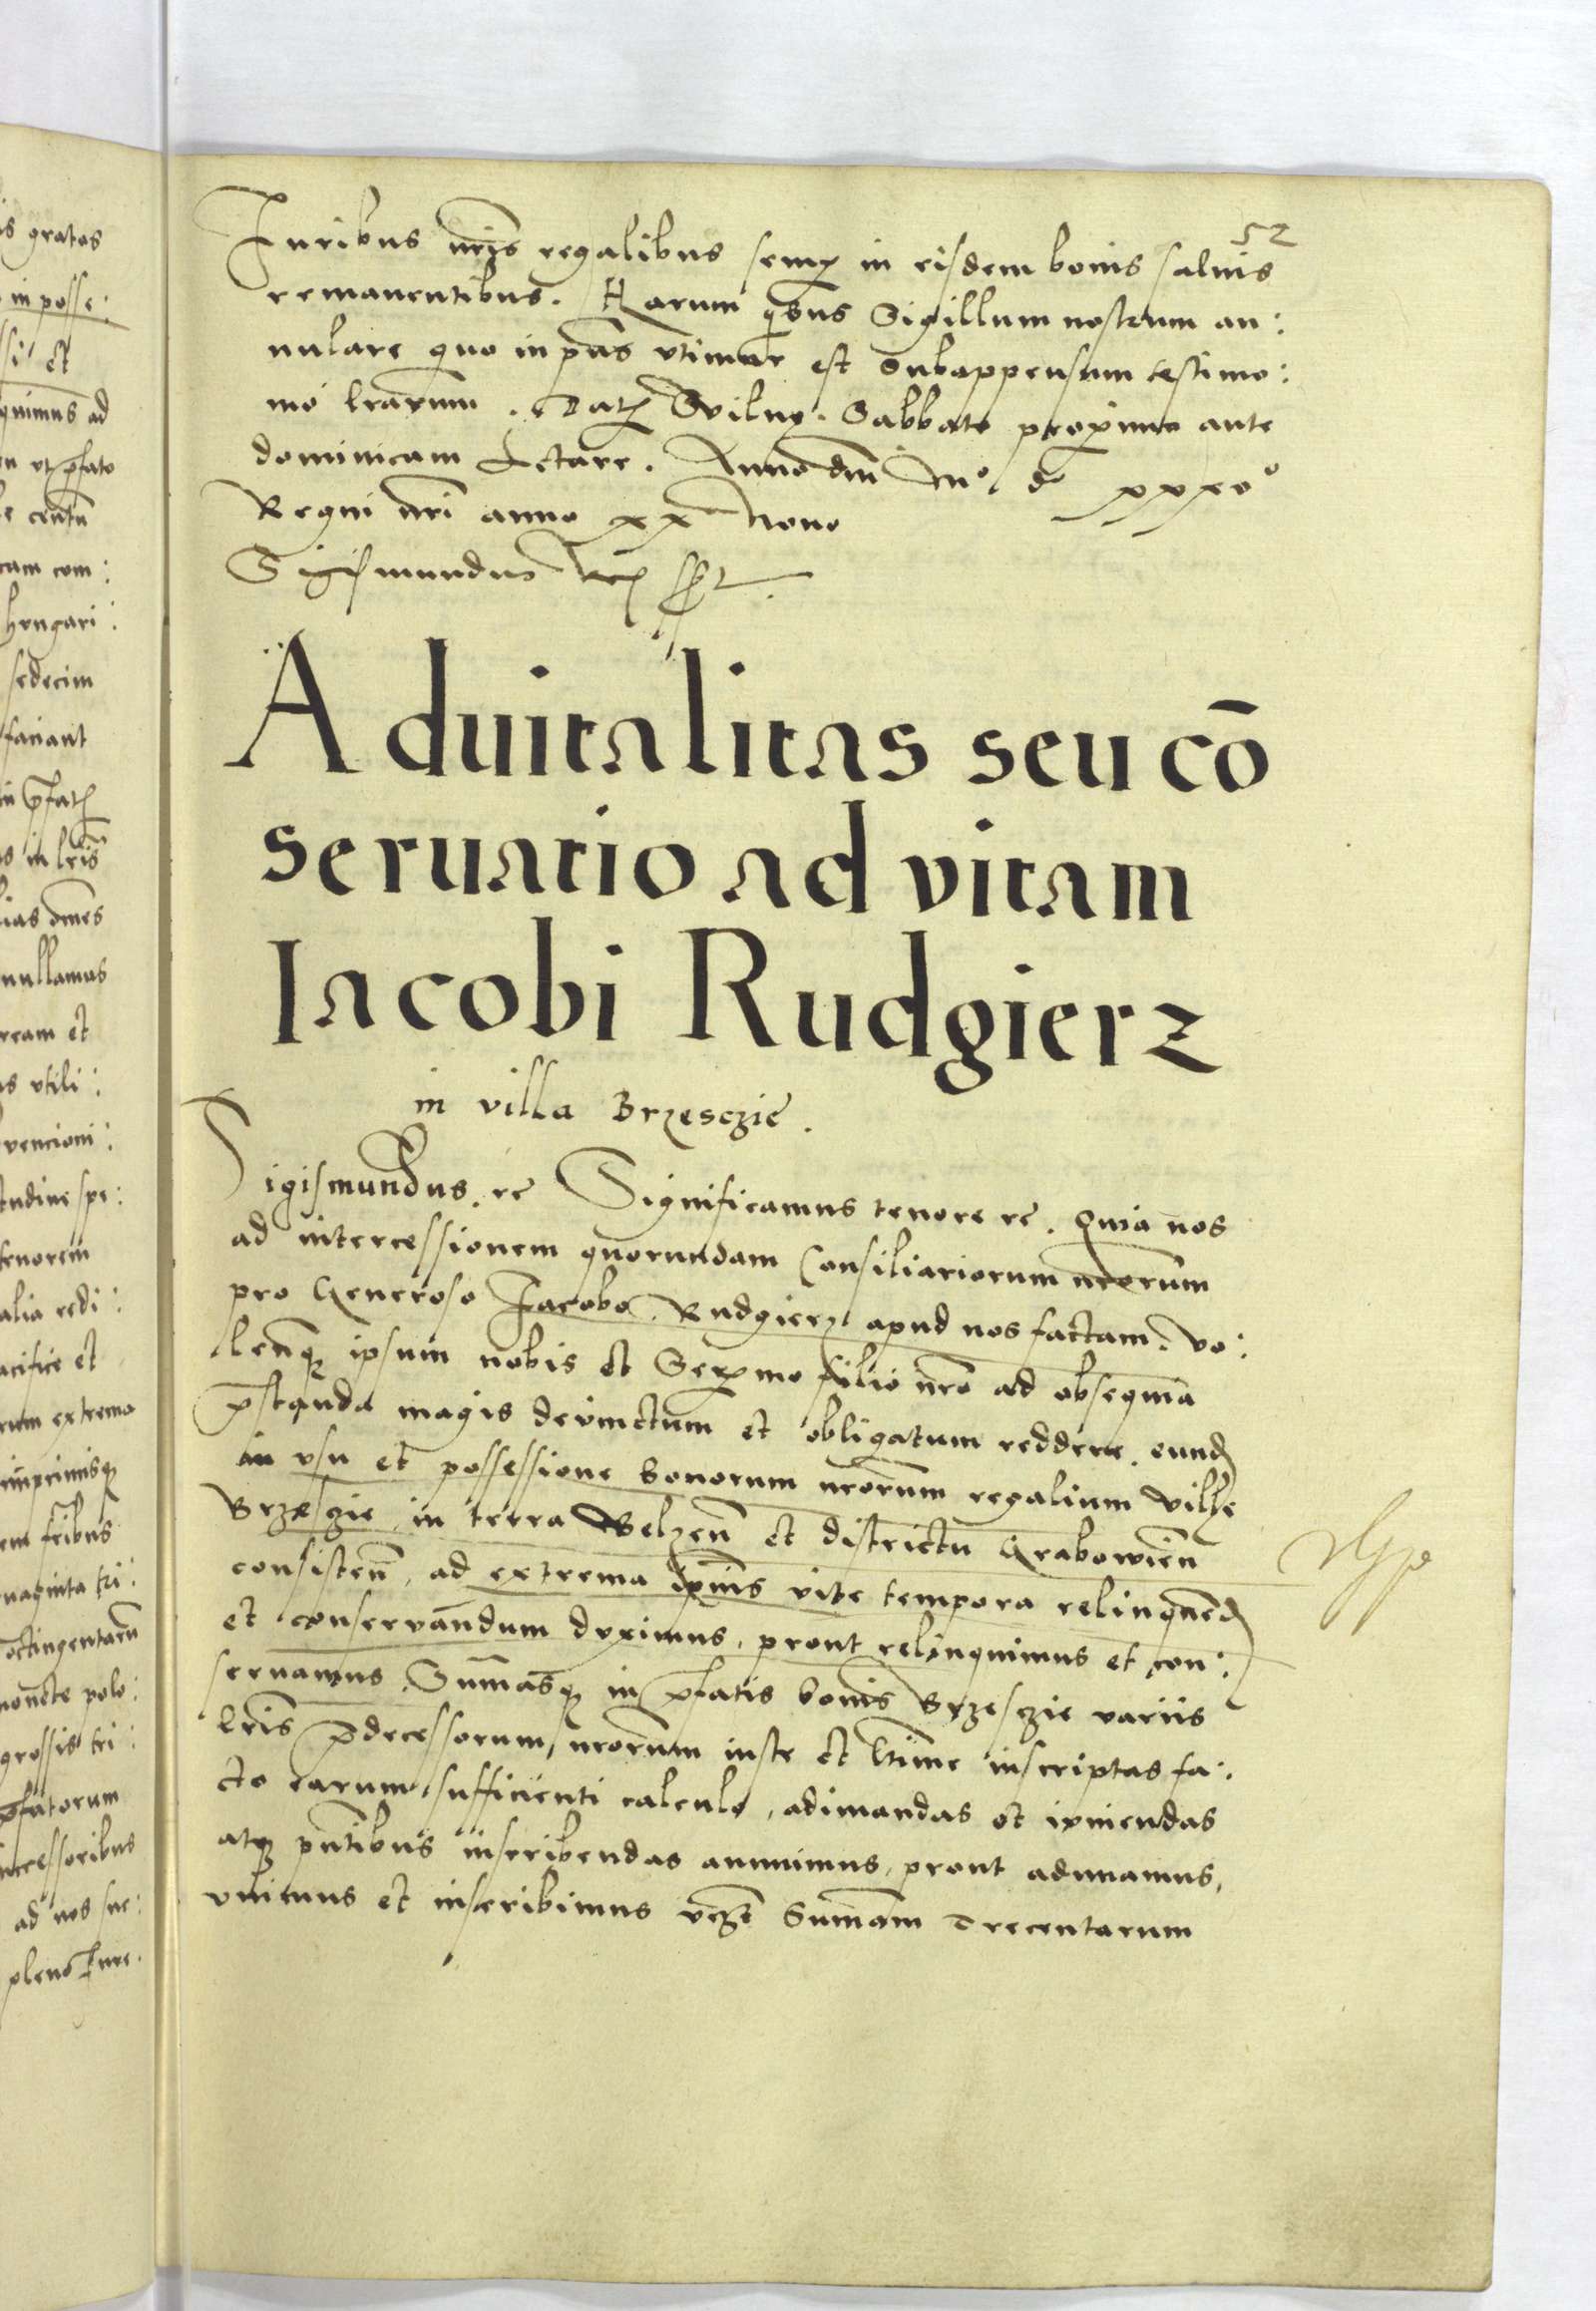 52
Iuribus nr̃is regalibus semp in eisdem bonis saluis
remanentibus. Harum qbus Sigillum nostrum an:
nulare quo in pñs vtimur est Subappensum testimo:
nio lrãrum. Datũ Vilnę. Sabbato proximo ante
dominicam Letare. Anno dñi Mº dº xxxvº
Regni nr̃i anno xx Nono
Sigismundus Rex sst
Aduitalitas seu cõ
seruatio ad vitam
Iacobi Rudgierz
in villa Brzesczie.
Sigismundus. rc̃ Significamus tenore rc̃. Quia nos
ad intercessionem quorundam Consiliariorum nrõrum
pro Generoso Jacobo Rudgierz apud nos factam. Vo:
lenq̃ ipsum nobis et Serẽmo filio nrõ ad obsequia
p̃standa magis deuinctum et obligatum reddere. eund
in vsu et possessione bonorum nrõrum regalium ville
Brzesczie in terra Belzeñ et districtu Grabowieñ
consisteñ, ad extrema ipsius vite tempora relinquend
et conservandum duximus, prout relinquimus et con:
seruamus. Sum̃asq̃ in p̃fatis bonis Brzesczie variis
lr̃is p̃decessorum nrõrum iuste et ltime inscriptas fa:
cto earum sufficienti calculo, adunandas et vniendas
atq̃ pñtibus inscribendas annuimus, prout adunamus,
vnimus et inscribimus vcz̃ Sum̃am Trecentarum
is gratos
in posse:
ssi et
quimus ad
ut p̃fato
centũ
cam com:
hungari:
sedecim
faciant
in p̃fatẽ
in lr̃is
lias om̃es
nullamus
ream et
as vtili:
vencioni:
tudine spe:
tenorem
alia redi:
acifice et
rum extrema
imprimisq̃
em fr̃ibus
uaginta tri:
octingentarũ
monete polo:
grossis tri:
p̃fatorum
uccessoribus
ad nos suc:
pleno Iure.